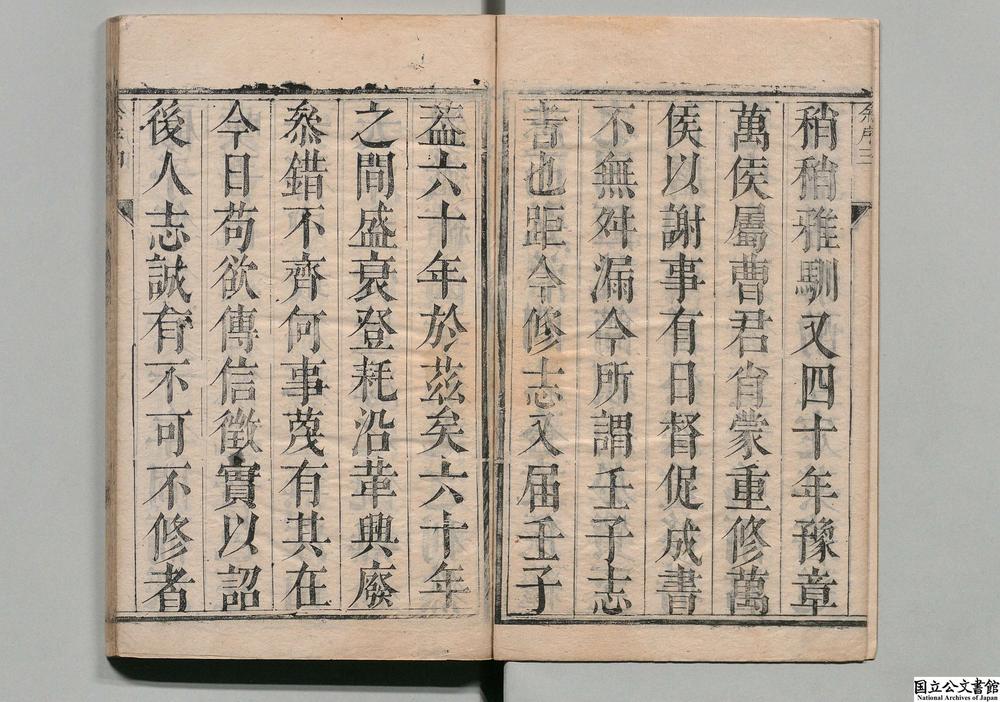 稍稍雅馴又四十年豫章
萬侯屬曹君肖蒙重修萬
侯以謝事有日督促成書
不無舛漏今所謂壬子志
者也距今修志又届壬子
葢六十年於茲矣六十年
之間盛衰登耗沿革興廢
叅錯不齊何事蔑有其在
今日苟欲傳信徵實以詔
後人志誠有不可不修者
国立公文書館
National Archives of Japan